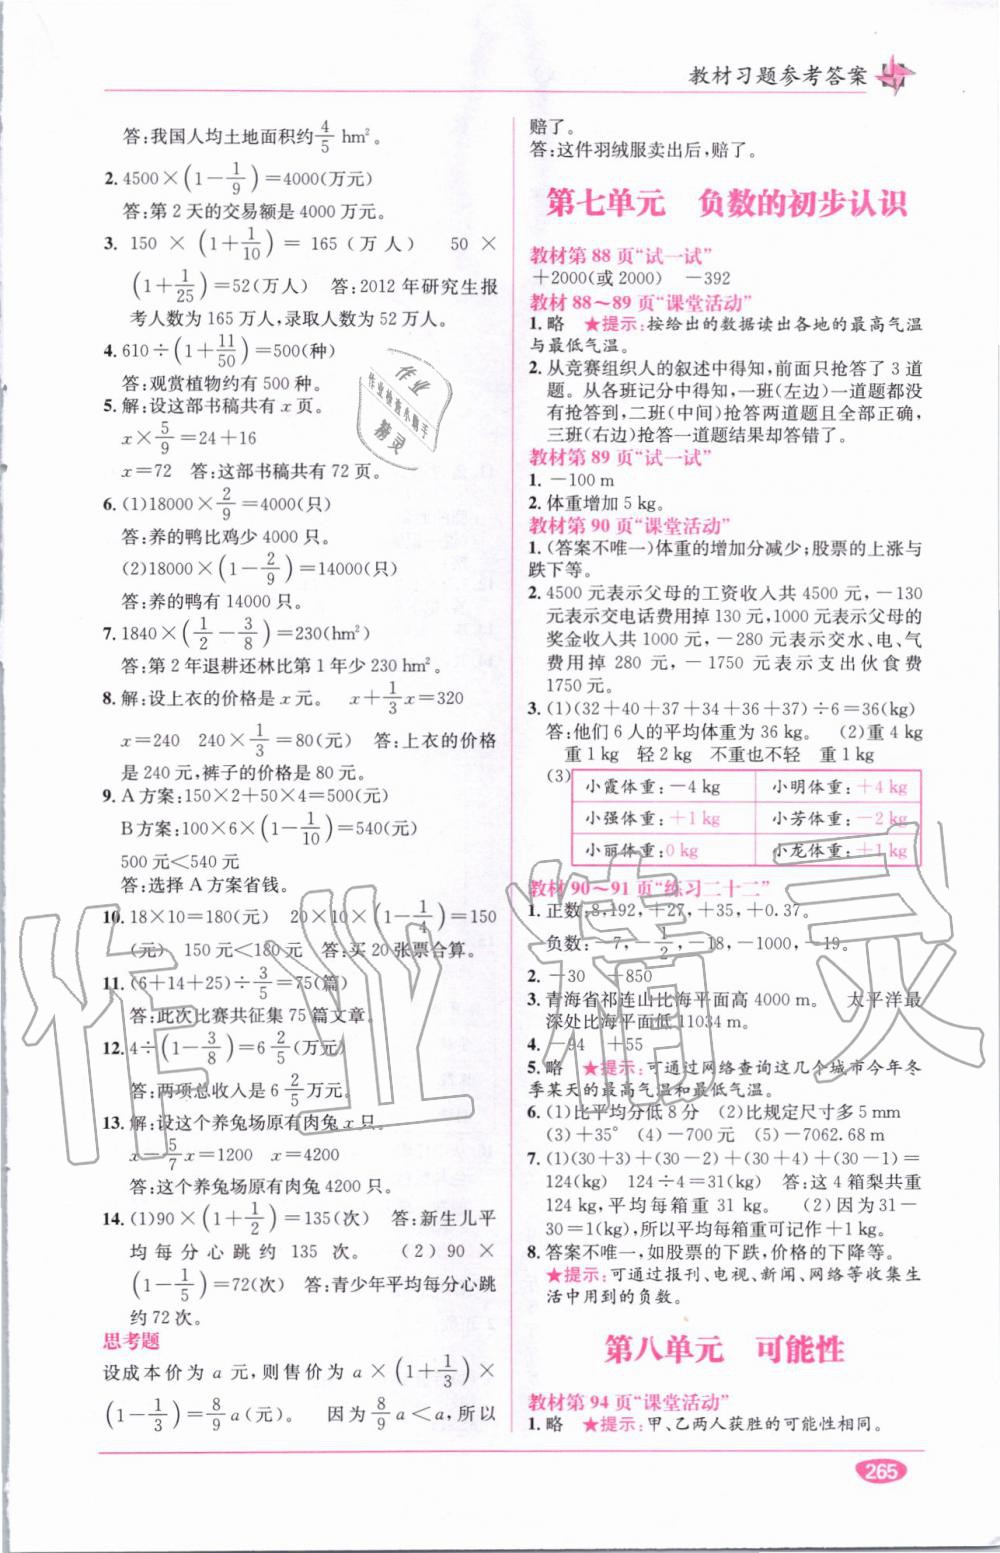 教材习题参考答案
答:我国人均土地面积约4/5 hm²。
2. 4500×(1-1/9)=4000(万元)
答:第2天的交易额是4000万元。
3. 150×(1+1/10)=165(万人) 50×
(1+1/25)=52(万人) 答:2012年研究生报
考人数为165万人,录取人数为52万人。
4. 610÷(1+11/50)=500(种)
答:观赏植物约有500种。
5. 解:设这部书稿共有x页。
x×5/9=24+16
x=72 答:这部书稿共有72页。
6. (1)18000×2/9=4000(只)
答:养的鸭比鸡少4000只。
(2)18000×(1-2/9)=14000(只)
答:养的鸭有14000只。
7. 1840×(1/2-3/8)=230(hm²)
答:第2年退耕还林比第1年少230 hm²。
8. 解:设上衣的价格是x元。 x+1/3x=320
x=240 240×1/3=80(元) 答:上衣的价格
是240元,裤子的价格是80元。
9. A方案:150×2+50×4=500(元)
B方案:100×6×(1-1/10)=540(元)
500元<540元
答:选择A方案省钱。
10. 18×10=180(元) 20×10×(1-1/4)=150
(元) 150元<180元 答:买20张票合算。
11. (6+14+25)÷3/5=75(篇)
答:此次比赛共征集75篇文章。
12. 4÷(1-3/8)=6 2/5(万元)
答:两项总收入是6 2/5万元。
13. 解:设这个养兔场原有肉兔x只。
x-5/7x=1200 x=4200
答:这个养兔场原有肉兔4200只。
14. (1)90×(1+1/2)=135(次) 答:新生儿平
均每分心跳约135次。 (2)90×
(1-1/5)=72(次) 答:青少年平均每分心跳
约72次。
思考题
设成本价为a元,则售价为a×(1+1/3)×
(1-1/3)=8/9a(元)。 因为8/9a<a,所以
赔了。
答:这件羽绒服卖出后,赔了。
第七单元 负数的初步认识
教材第88页“试一试”
+2000(或2000) -392
教材88~89页“课堂活动”
1. 略 ★提示:按给出的数据读出各地的最高气温
与最低气温。
2. 从竞赛组织人的叙述中得知,前面只抢答了3道
题。从各班记分中得知,一班(左边)一道题都没
有抢答到,二班(中间)抢答两道题且全部正确,
三班(右边)抢答一道题结果却答错了。
教材第89页“试一试”
1. -100 m
2. 体重增加5 kg。
教材第90页“课堂活动”
1. (答案不唯一)体重的增加分减少;股票的上涨与
跌下等。
2. 4500元表示父母的工资收入共4500元,-130
元表示交电话费用掉130元,1000元表示父母的
奖金收入共1000元,-280元表示交水、电、气
费用掉280元,-1750元表示支出伙食费
1750元。
3. (1)(32+40+37+34+36+37)÷6=36(kg)
答:他们6人的平均体重为36 kg。 (2)重4 kg
重1 kg 轻2 kg 不重也不轻 重1 kg
(3)
小霞体重:-4 kg 小明体重:+4 kg
小强体重:+1 kg 小芳体重:-2 kg
小丽体重:0 kg 小龙体重:+1 kg
教材90~91页“练习二十二”
1. 正数:8,192,+27,+35,+0.37。
负数:-7,-1/2,-18,-1000,-19。
2. -30 +850
3. 青海省祁连山比海平面高4000 m。 太平洋最
深处比海平面低11034 m。
4. -94 +55
5. 略 ★提示:可通过网络查询这几个城市今年冬
季某天的最高气温和最低气温。
6. (1)比平均分低8分 (2)比规定尺寸多5 mm
(3)+35° (4)-700元 (5)-7062.68 m
7. (1)(30+3)+(30-2)+(30+4)+(30-1)=
124(kg) 124÷4=31(kg) 答:这4箱梨共重
124 kg,平均每箱重31 kg。 (2)因为31-
30=1(kg),所以平均每箱重可记作+1 kg。
8. 答案不唯一,如股票的下跌,价格的下降等。
★提示:可通过报刊、电视、新闻、网络等收集生
活中用到的负数。
第八单元 可能性
教材第94页“课堂活动”
1. 略 ★提示:甲、乙两人获胜的可能性相同。
265
作业精灵
作业
作业检查小助手
精灵